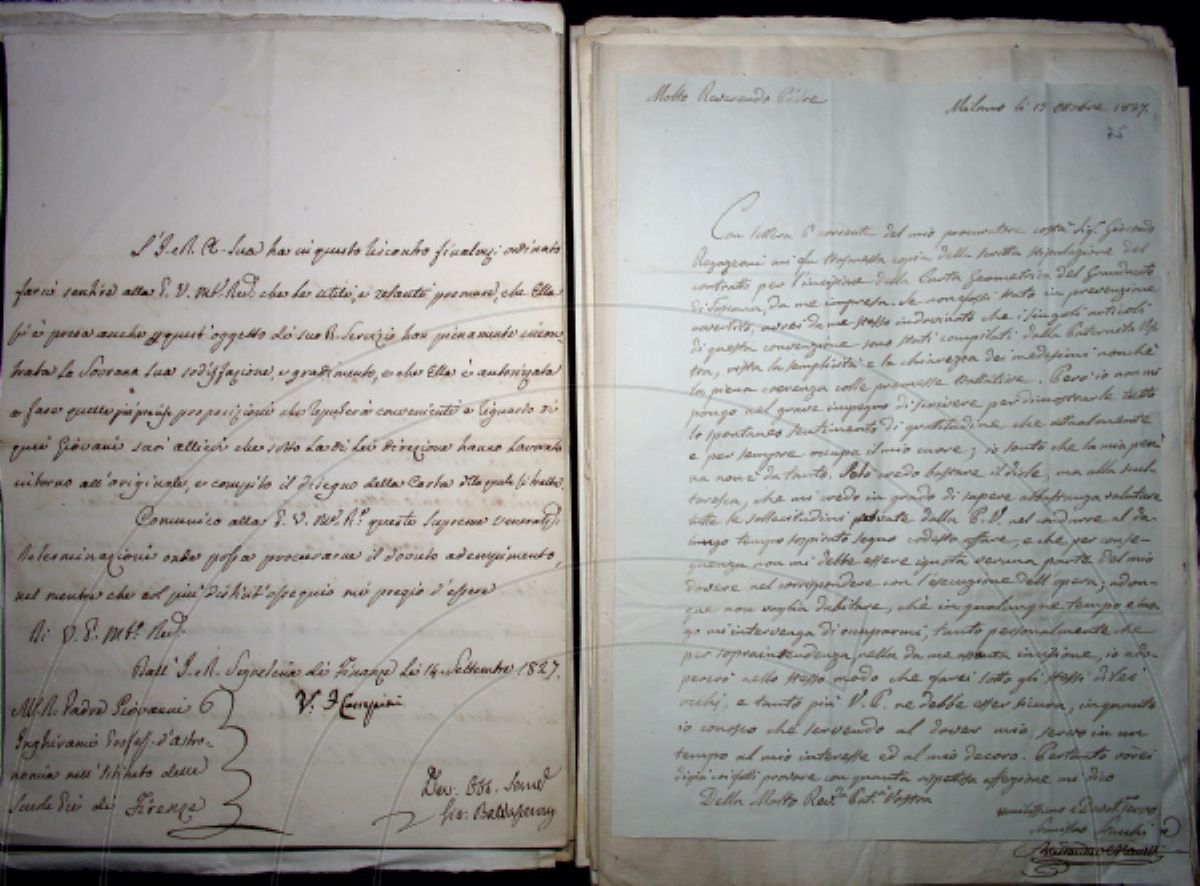 S. I. e R. A. Sua ha in questo riscontro ordinato
farsi sentire alla P. V. M.to Rev. che le utili, e zelanti premure, che Ella
si è presa anche quest'oggetto di suo R. Servizio han pienamente incon-
trata la Sovrana sua sodisfazione, e gradimento, e che Ella è autorizzata
a fare quelle proposizioni che reputerà convenienti a riguardo di
quei Giovani suoi allievi che sotto la di Lei direzione hanno lavorato
intorno all'originale, e compito il disegno della Carta della quale si tratta.
Comunico alla P. V. M. R. queste supreme venerate
determinazioni onde possa procurarne il dovuto adempimento,
nel mentre che col più distint'ossequio mi pregio d'essere
Di V. P. M.to Rev.
Dall' I. e R. Segreteria di Finanze li 14 Settembre 1827.
M. R. Padre Giovanni
V. F. Cempini
Inghirami Profess. d'astro-
nomia nell'Istituto delle
Scuole Pie di Firenze
Dev. Obb. Serv.
Molto Reverendo Padre
Milano li 17 Ottobre 1827.
75
Con lettera 6 corrente del mio procuratore costà Sig. Giocondo
Ragazzoni mi fu trasmessa copia della scritta stipulazione del
contratto per l'incisione della Carta Geometrica del Granducato
di Toscana, da me impresa. Se non fossi stato in prevenzione
avvertito, avrei da me stesso indovinato che i singoli articoli
di questa convenzione sono stati compilati dalla Paternità Vos-
tra, vista la semplicità e la chiarezza dei medesimi nonchè
la piena coerenza colle premesse trattative. Però io non mi
pongo nel grave impegno di scrivere per dimostrarle tutto
lo spontaneo sentimento di gratitudine che attualmente
e per sempre occupa il mio cuore; io sento che la mia pen-
na non è da tanto. Solo credo bastare il dirle, ma alla
che mi credo in grado di sapere abbastanza valutare
tutte le sollecitudini dalla P. V. nel condurre al
tempo codesto affare, e che per conse-
guenza non mi debbe essere ignota veruna parte del mio
dovere nel corrispondere con l'esecuzione dell'opera; adun-
que non voglia dubitare, che in qualunque tempo e luo-
go mi intervenga di occuparmi, tanto personalmente che
per sopraintendenza, nella da me assunta incisione, io ado-
pererò nello stesso modo che farei sotto gli stessi di Lei
occhi, e tanto più V. P. ne debbe esser sicura, in quanto
io conosco che servendo al dover mio, servo in un
tempo al mio interesse ed al mio decoro. Pertanto vorrei
di già coi fatti provare con quanta rispettosa affezione mi dico
Della Molto Rev. Pat. Vostra
umilissimo e Devot. servo
Stanislao Stucchi